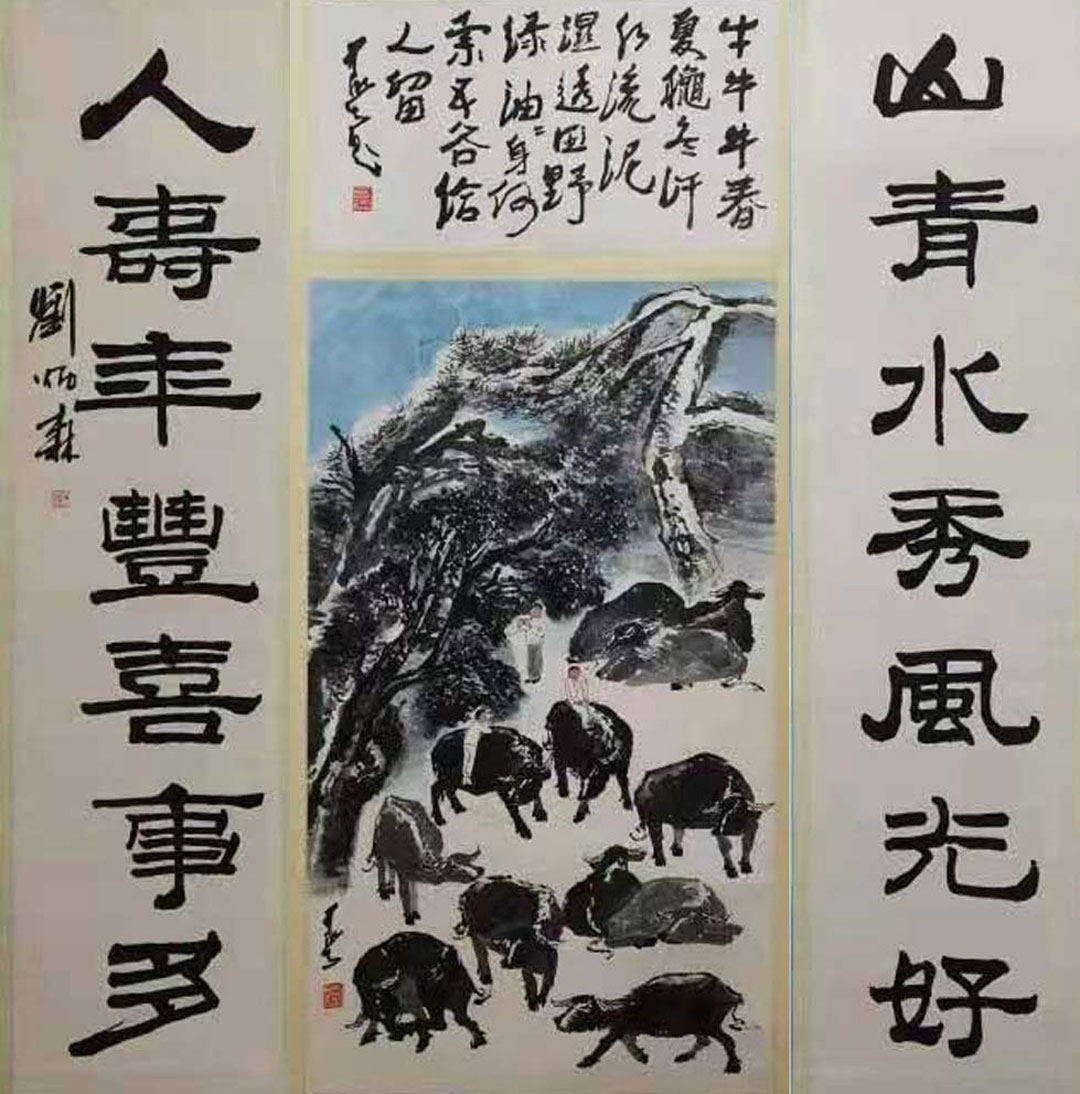 山青水秀風光好
牛牛牛春
夏穐冬汗
水流泥
湿透田野
绿油〻身何
索不吝给
人留
人壽年豐喜事多
劉炳森